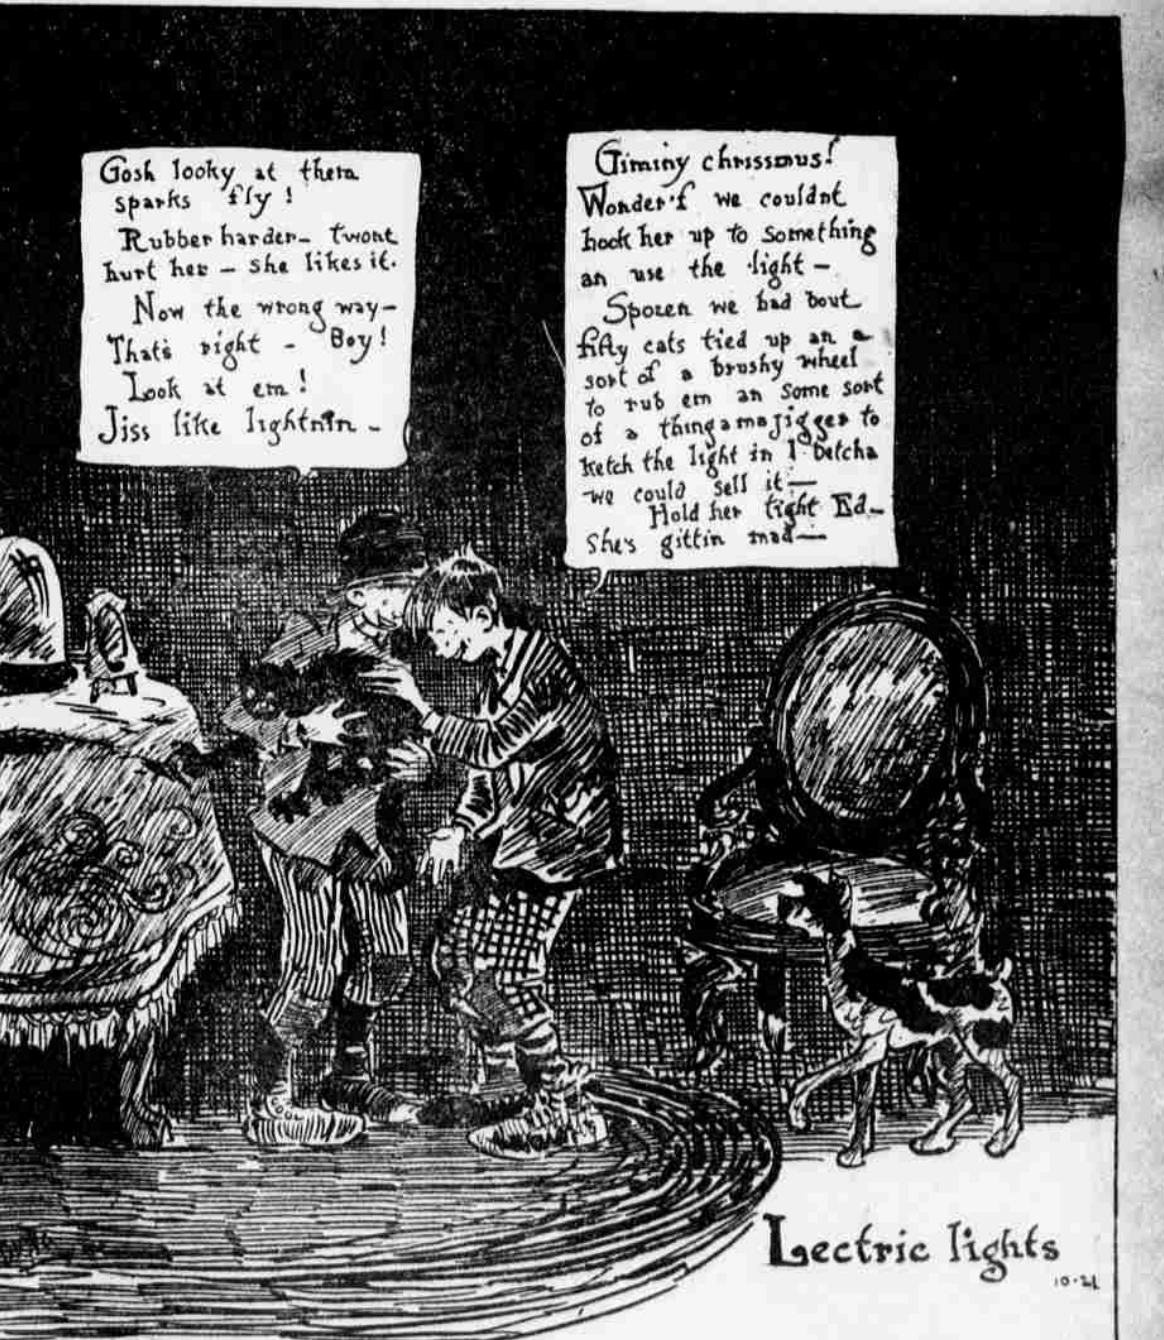 Gosh looky at them
sparks fly!
Rubber harder_ twont
hurt her - she likes it.
Now the wrong way-
Thats right - Boy!
Look at em!
Jiss like lightnin -
Giminy chrissmus!
Wonder'f we couldnt
hook her up to something
an use the light -
Spozen we had bout
fifty cats tied up an a
sort of a brushy wheel
to rub em an some sort
of a thingamajigger to
ketch the light in I betcha
we could sell it —
Hold her tight Ed_
She's gittin mad —
Lectric lights
10-21